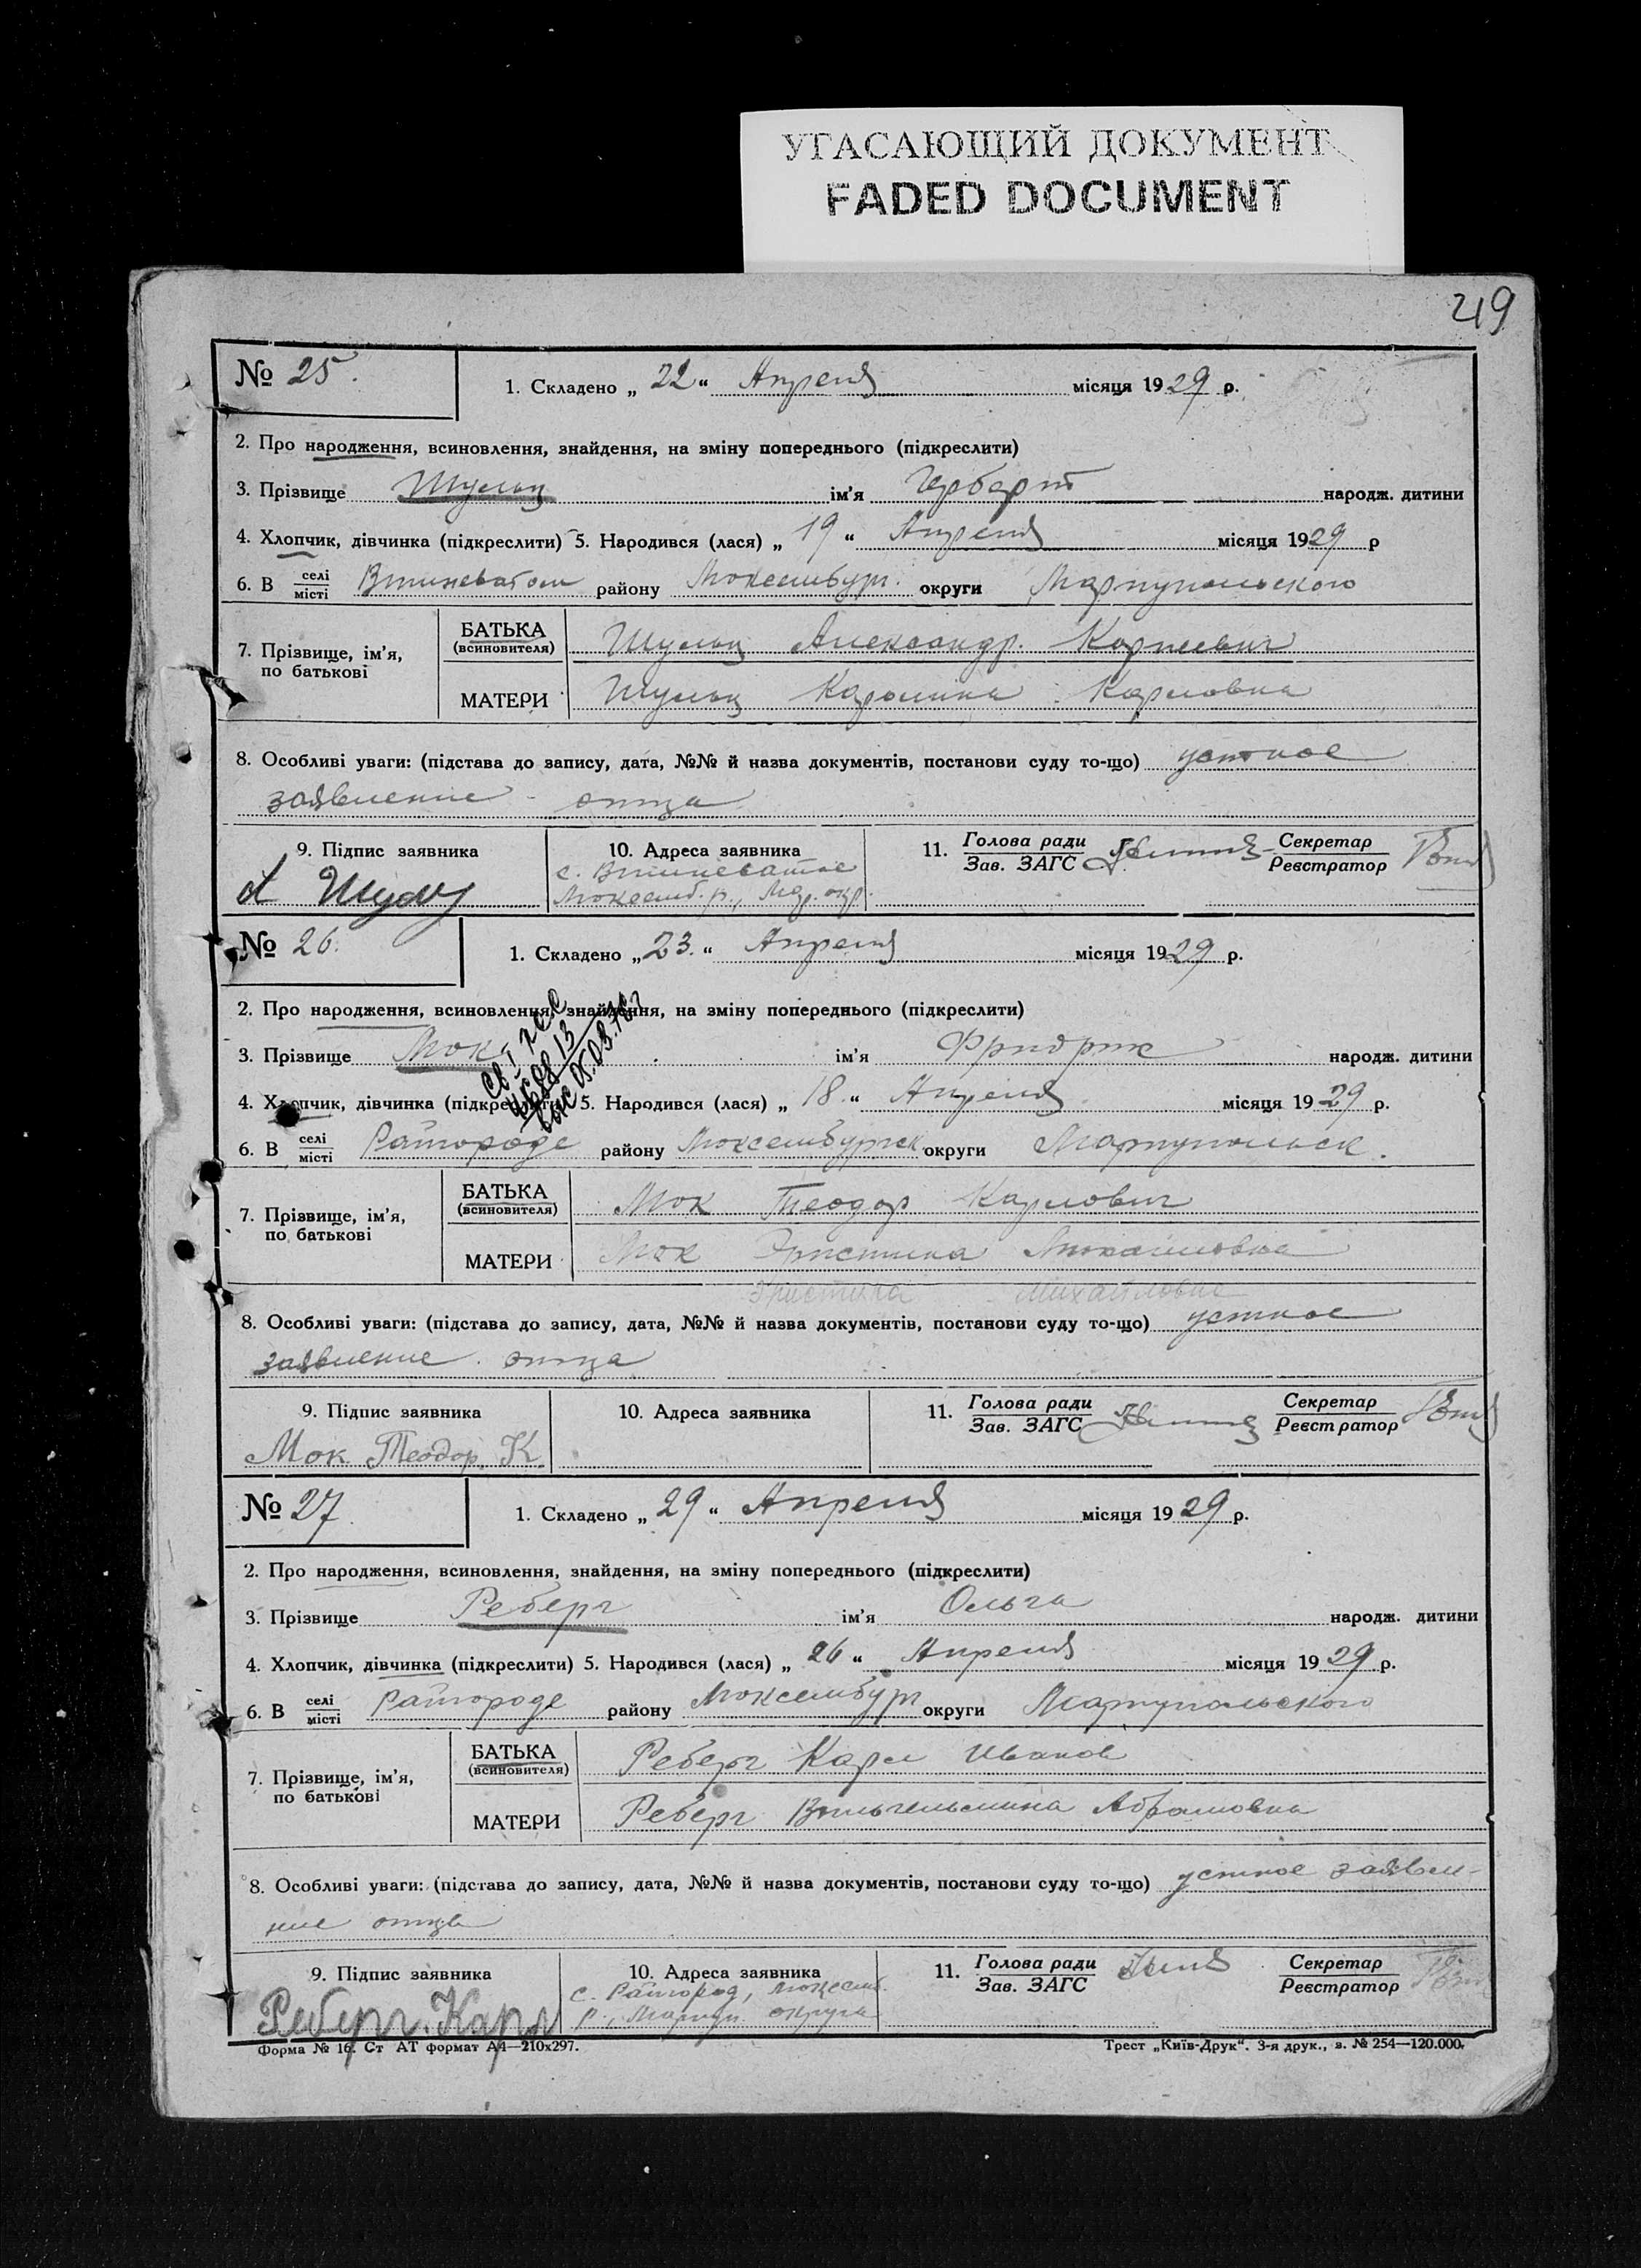 УГАСАЮЩИЙ ДОКУМЕНТ
FADED DOCUMENT
219
№ 25.
1. Складено „ 22 “ Апреля місяця 1929 р.
2. Про народження, всиновлення, знайдення, на зміну попереднього (підкреслити)
3. Прізвище Шульц ім'я Герберт народж. дитини
4. Хлопчик, дівчинка (підкреслити) 5. Народився (лася) „ 19 “ Апреля місяця 1929 р
6. В селі/місті Вишневатом району Люксембург. округи Мариупольского
7. Прізвище, ім'я, по батькові
БАТЬКА (всиновителя) Шульц Александр Корнеевич
МАТЕРИ Шульц Каролина Карловна
8. Особливі уваги: (підстава до запису, дата, №№ й назва документів, постанови суду то-що) устное
заявление отца
9. Підпис заявника 10. Адреса заявника 11. Голова ради/Зав. ЗАГС Секретар/Реєстратор
с. Вишневатое
Люксемб. р., Мар. окр.
Шульц
№ 26.
1. Складено „ 23. “ Апреля місяця 1929 р.
2. Про народження, всиновлення, знайдення, на зміну попереднього (підкреслити)
3. Прізвище Мок ім'я Фридрих народж. дитини
4. Хлопчик, дівчинка (підкреслити) 5. Народився (лася) „ 18. “ Апреля місяця 1929 р.
6. В селі/місті Райгороде району Люксембургск округи Мариупольск.
7. Прізвище, ім'я, по батькові
БАТЬКА (всиновителя) Мок Теодор Карлович
МАТЕРИ Мок Христина Михайловна
Христина Михайловна
8. Особливі уваги: (підстава до запису, дата, №№ й назва документів, постанови суду то-що) устное
заявление отца
9. Підпис заявника 10. Адреса заявника 11. Голова ради/Зав. ЗАГС Секретар/Реєстратор
Мок Теодор. К.
№ 27
1. Складено „ 29 “ Апреля місяця 1929 р.
2. Про народження, всиновлення, знайдення, на зміну попереднього (підкреслити)
3. Прізвище Реберг ім'я Ольга народж. дитини
4. Хлопчик, дівчинка (підкреслити) 5. Народився (лася) „ 26 “ Апреля місяця 1929 р.
6. В селі/місті Райгороде району Люксембург округи Мариупольского
7. Прізвище, ім'я, по батькові
БАТЬКА (всиновителя) Реберг Карл Иванов
МАТЕРИ Реберг Вильгельмина Абрамовна
8. Особливі уваги: (підстава до запису, дата, №№ й назва документів, постанови суду то-що) устное заявле-
ние отца
9. Підпис заявника 10. Адреса заявника 11. Голова ради/Зав. ЗАГС Секретар/Реєстратор
с. Райгород, Люксемб.
р., Мариуп. округа
Реберг. Карл
Форма № 16. Ст АТ формат А4—210х297.
Трест „Київ-Друк“. 3-я друк., з. № 254—120.000.